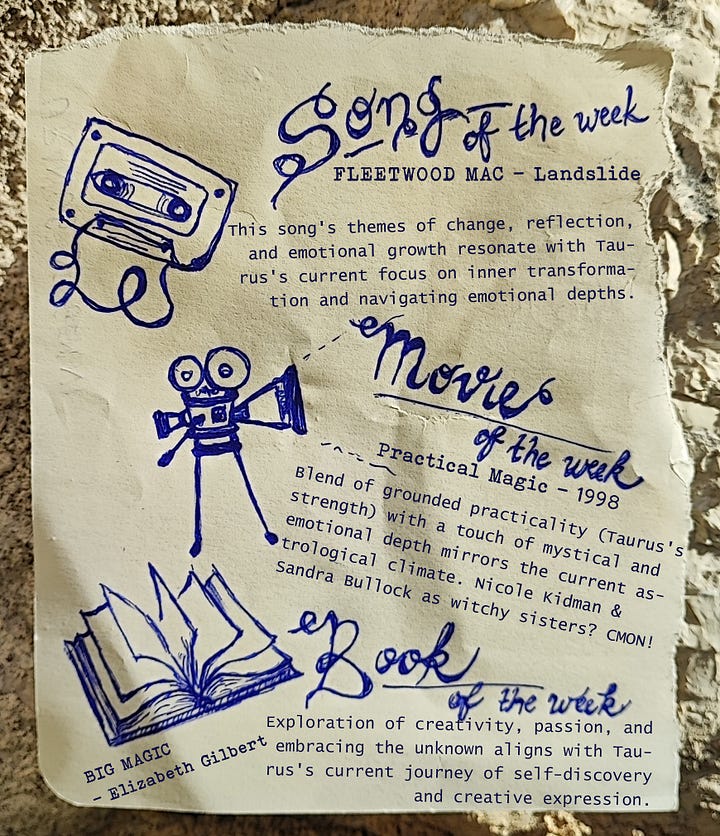 Song of the week
FLEETWOOD MAC - Landslide
This song's themes of change, reflection,
and emotional growth resonate with Tau-
rus's current focus on inner transforma-
tion and navigating emotional depths.
Movie
of the week
Practical Magic - 1998
Blend of grounded practicality (Taurus's
strength) with a touch of mystical and
emotional depth mirrors the current as-
trological climate. Nicole Kidman &
Sandra Bullock as witchy sisters? CMON!
Book
of the week
BIG MAGIC
- Elizabeth Gilbert
Exploration of creativity, passion, and
embracing the unknown aligns with Tau-
rus's current journey of self-discovery
and creative expression.